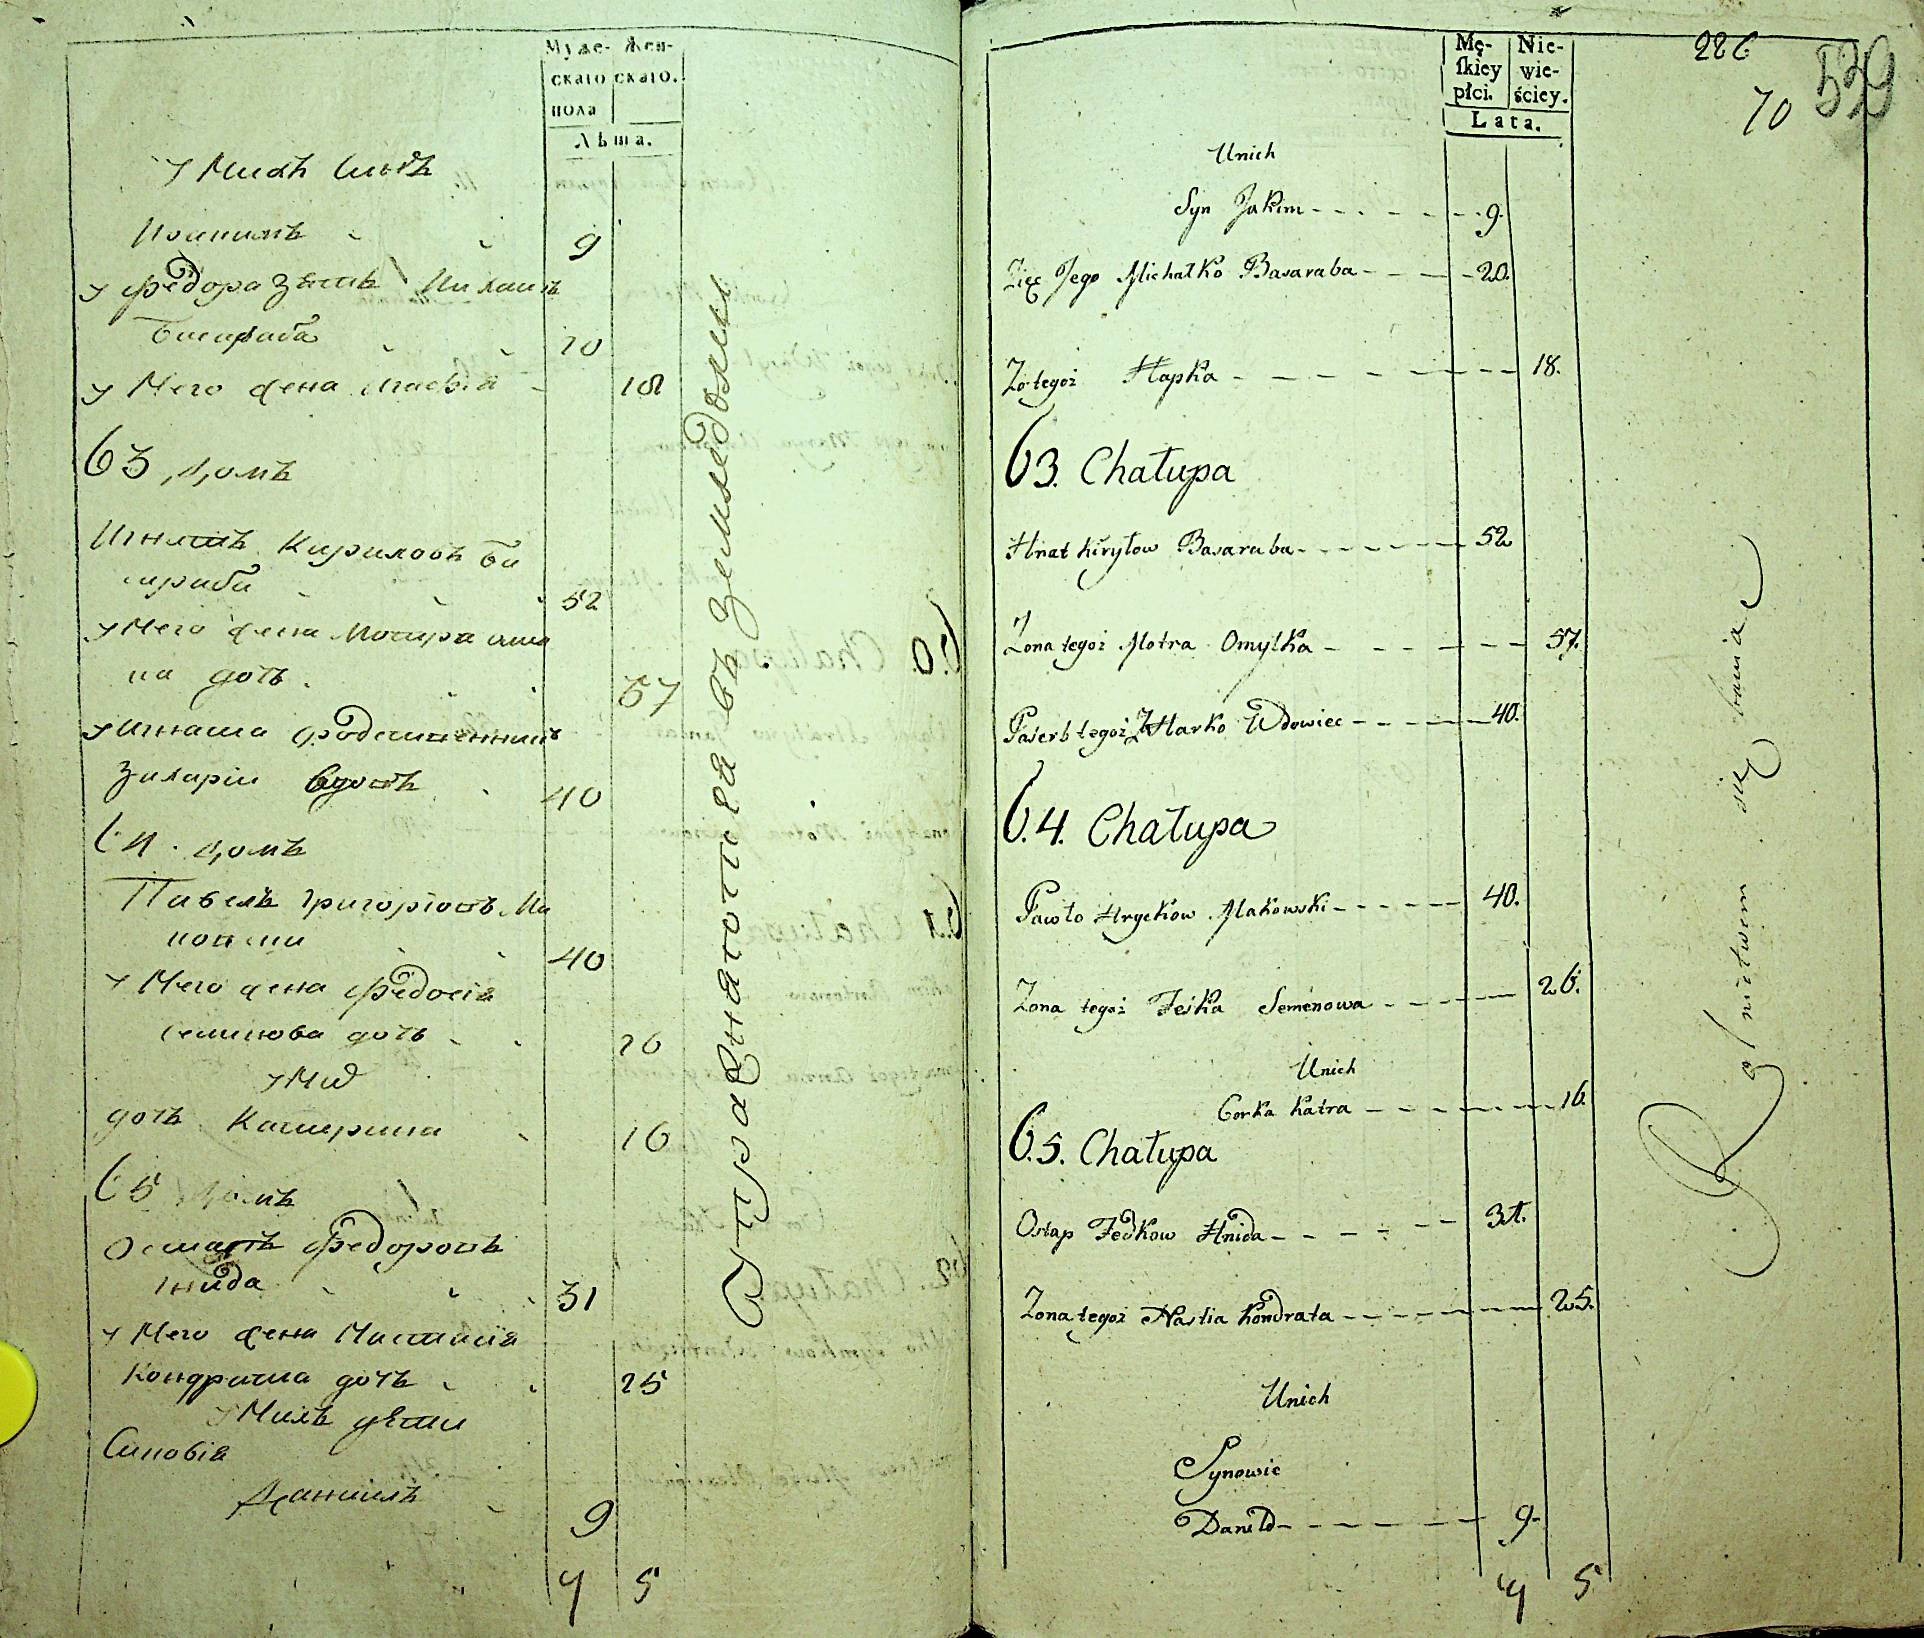 Муже-
скаго
пола
Жен-
скаго.
Лѣта.
у Михъ Сынъ
Иоакимъ 9
у Федора зять Михаилъ
Басараба 20
у Него жена Агафія 18
63, домъ
Игнатъ Кириловъ Ба
сараба 52
у Него жена Мотря оми
на дочь 57
у Игната
Иларіи вдовъ 40
64. домъ
Павелъ Григоріовъ Ма
ковски 40
у Него жена Федосія
Семенова дочь 26
у Них
дочь Катерина 16
65 домъ
Остапъ Федоровъ
Гнида 31
у Него жена Настасія
Кондратова дочь 25
у Нихъ дѣти
Синовія
Даніилъ 9
7 5
въ Земледоми
Mę-
skiey
płci.
Nie-
wie-
ściey.
Lata.
226
70
539
Unich
Syn Jakim 9.
Zięć Jego Michałko Basaraba 20.
Żo tegoż Hapka 18.
63. Chałupa
Hnat Kiryłow Basaraba 52
Żona tegoż Motra Omylka 57.
Paśerb tegoż Harko Wdowiec 40.
64. Chałupa
Pawło Hryckow Makowski 40.
Żona tegoż Feśka Semenowa 26.
Unich
Corka Katra 16.
65. Chałupa
Ostap Fedkow Hnida 31.
Żona tegoż Nastia Kondrata 25.
Unich
Synowie
Daniło 9
7 5